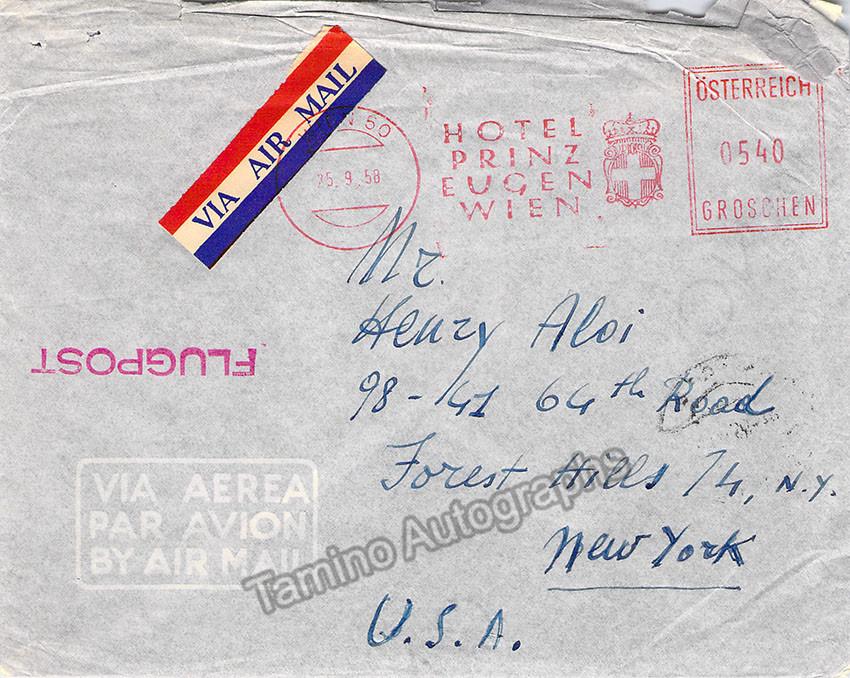 VIA AIR MAIL
WIEN 50
25. 9. 58
HOTEL
PRINZ
EUGEN
WIEN
ÖSTERREICH
0540
GROSCHEN
Mr.
Henry Aloi
98-41 64th Road
Forest Hills 74, N.Y.
New York
U.S.A.
FLUGPOST
VIA AEREA
PAR AVION
BY AIR MAIL
Tamino Autographs